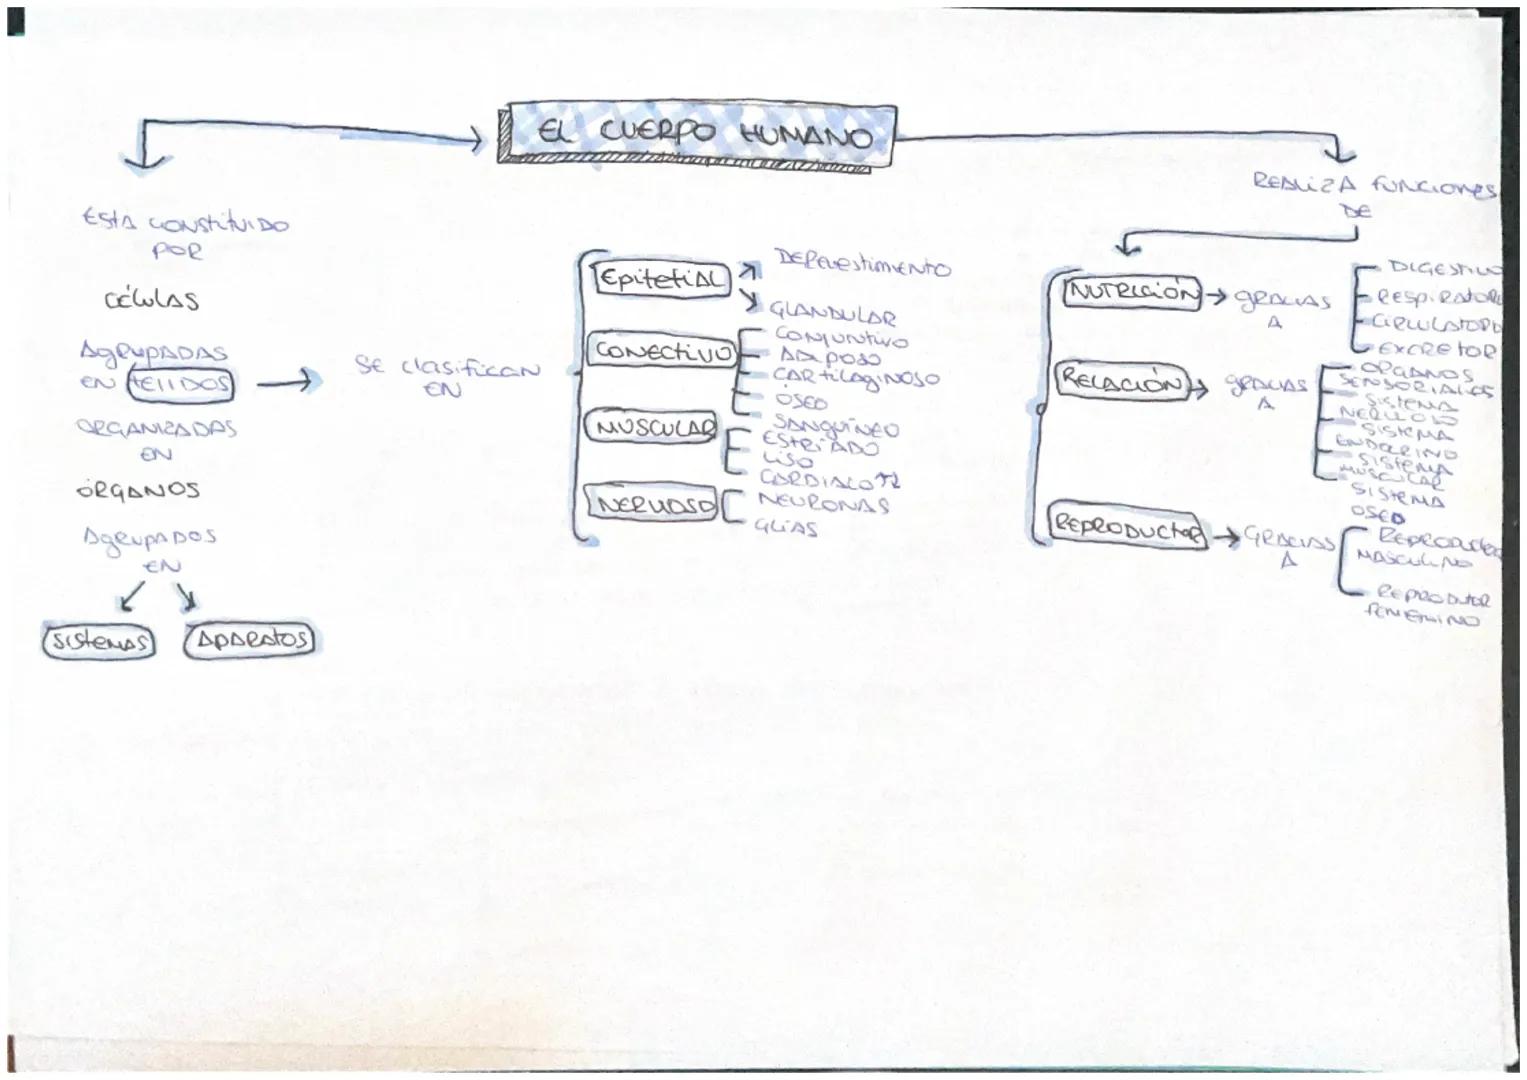 EL CUERPO HUMANO
ESTÁ CONSTITUIDO
POR
CÉLULAS
AGRUPADAS
EN TEJIDOS
ORGANIZADAS
EN
ÓRGANOS
AGRUPADOS
EN
SISTEMAS
APARATOS
SE clasifican
EN
Epitetial
DEREVESTIMIENTO
GLANDULAR
CONECTIVO
CONJUNTIVO
ADIPOSO
CARTILAGINOSO
ÓSEO
SANGUÍNEO
MUSCULAR
ESTRIADO
LISO
NERVOSO
NEURONAS
GLÍAS
REALIZA FUNCIONES
DE
NUTRICIÓN
GRACIAS
A
DIGESTIVO
RESPIRATOR
CIRCULATORIO
EXCRETOR
RELACIÓN
GRACIAS
A
ORGANOS
SENSORIALES
SISTEMA
NERVIOSO
SISTEMA
ENDOCRINO
SISTEMA
MUSCULAR
SISTEMA
OSEO
REPRODUCTOR
GRACIAS
A
REPRODUCTOR
MASCULINO
REPRODUTOR
FEMENINO